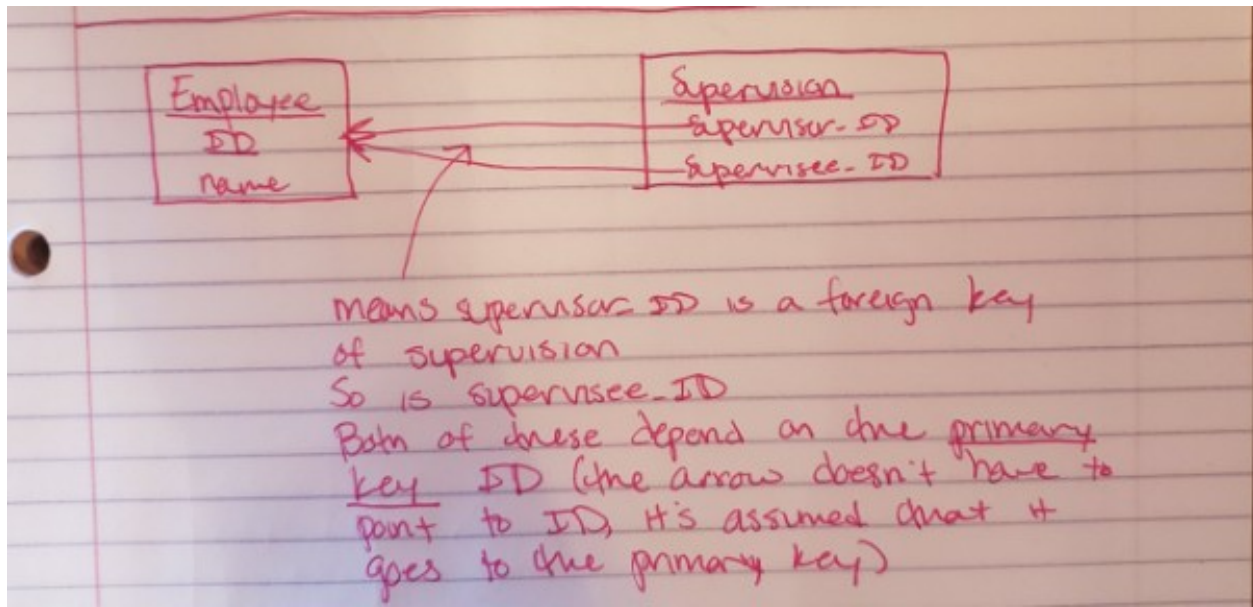 Employee
ID
name
Supervision
supervisor_ID
supervisee_ID
means supervisor_ID is a foreign key
of supervision
So is supervisee_ID
Both of these depend on the primary
key ID (the arrow doesn't have to
point to ID, it's assumed that it
goes to the primary key)